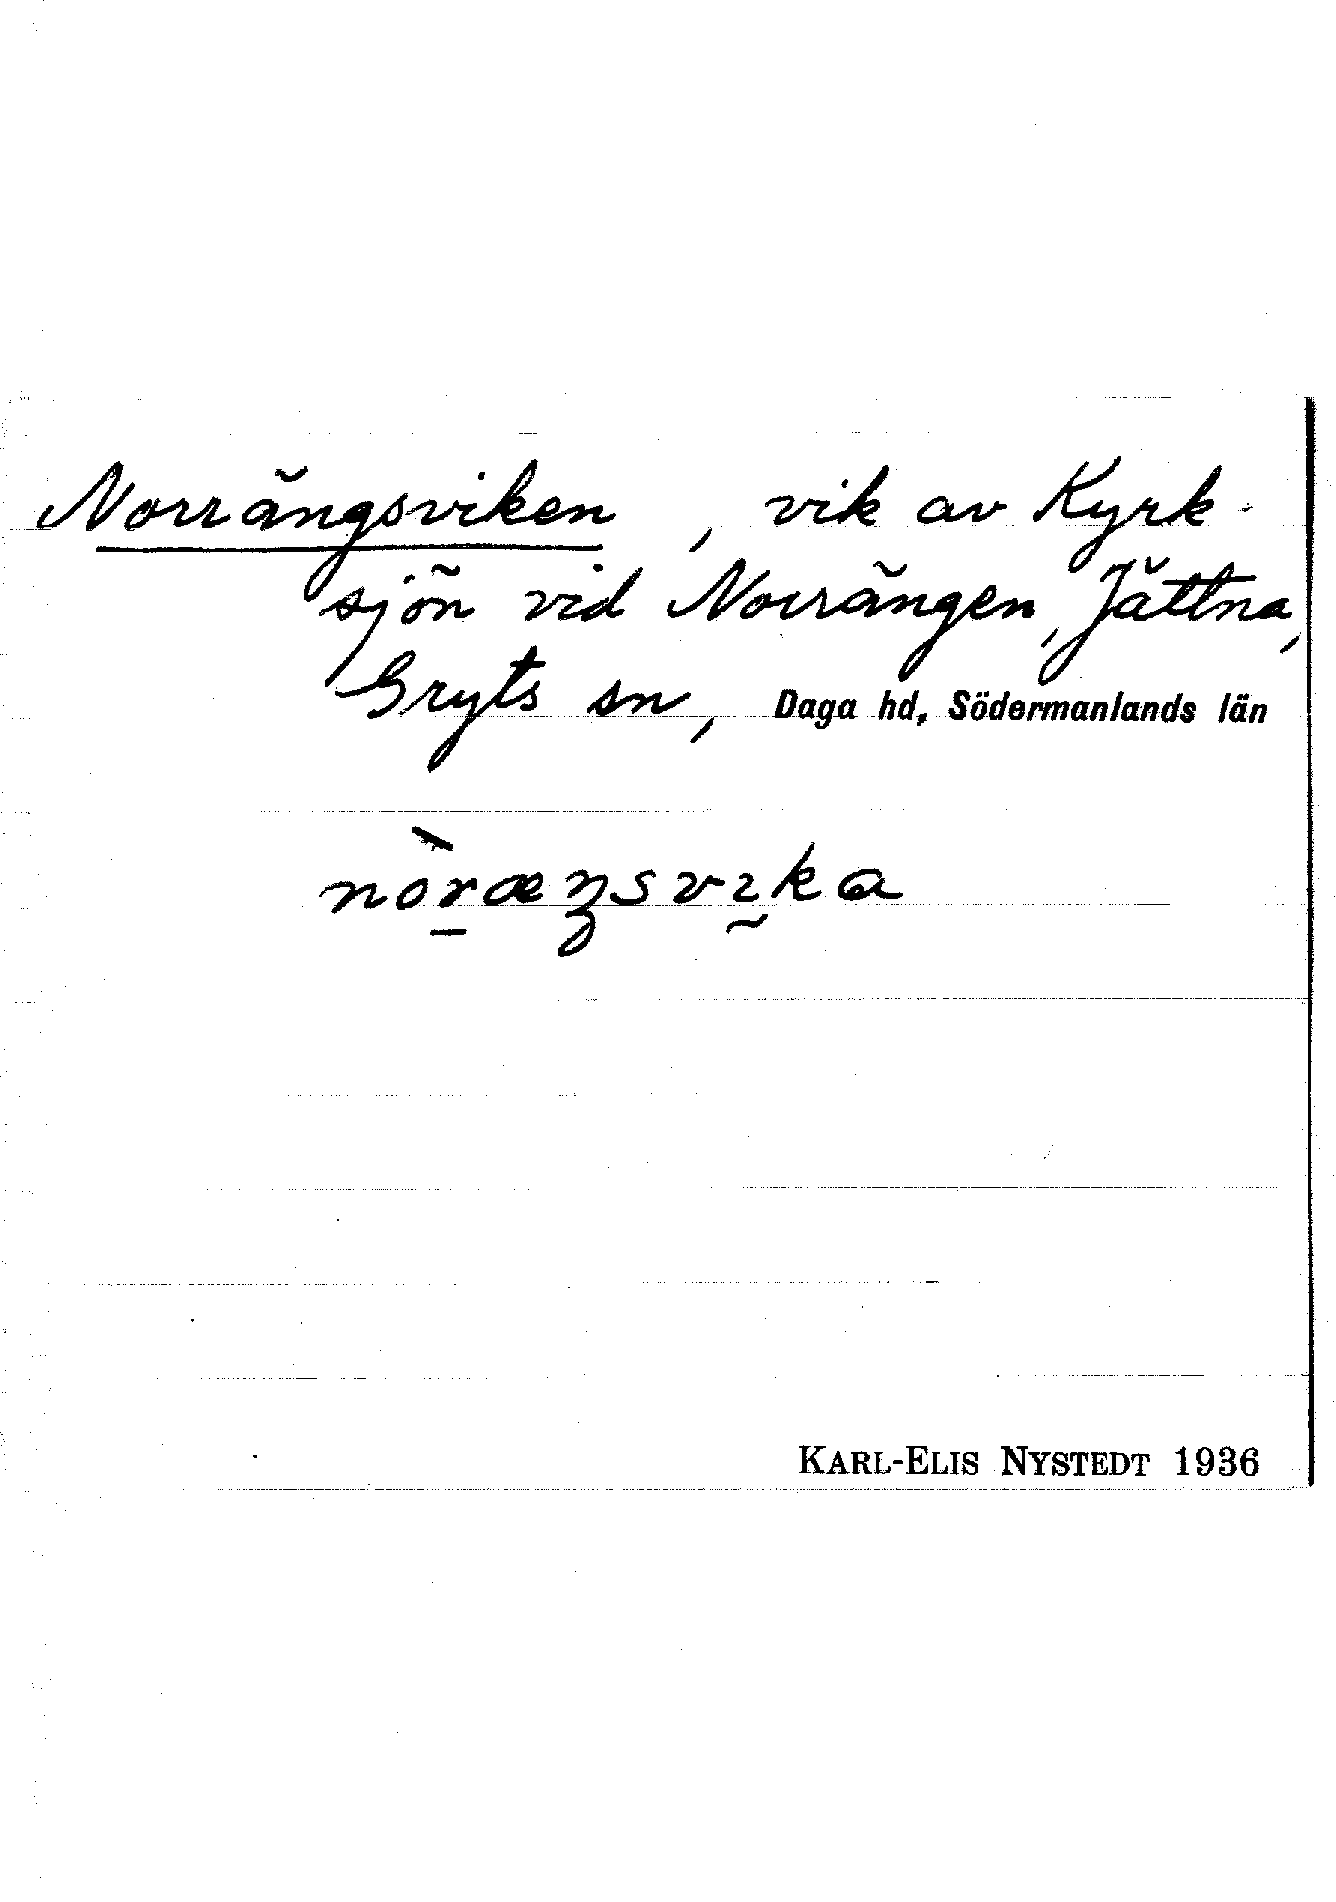 Norrängsviken, vik av Kyrk-
sjön vid Norrängen, Jättna,
Gryts sn, Daga hd, Södermanlands län
nòr̲æŋsvı̰ka
KARL-ELIS NYSTEDT 1936